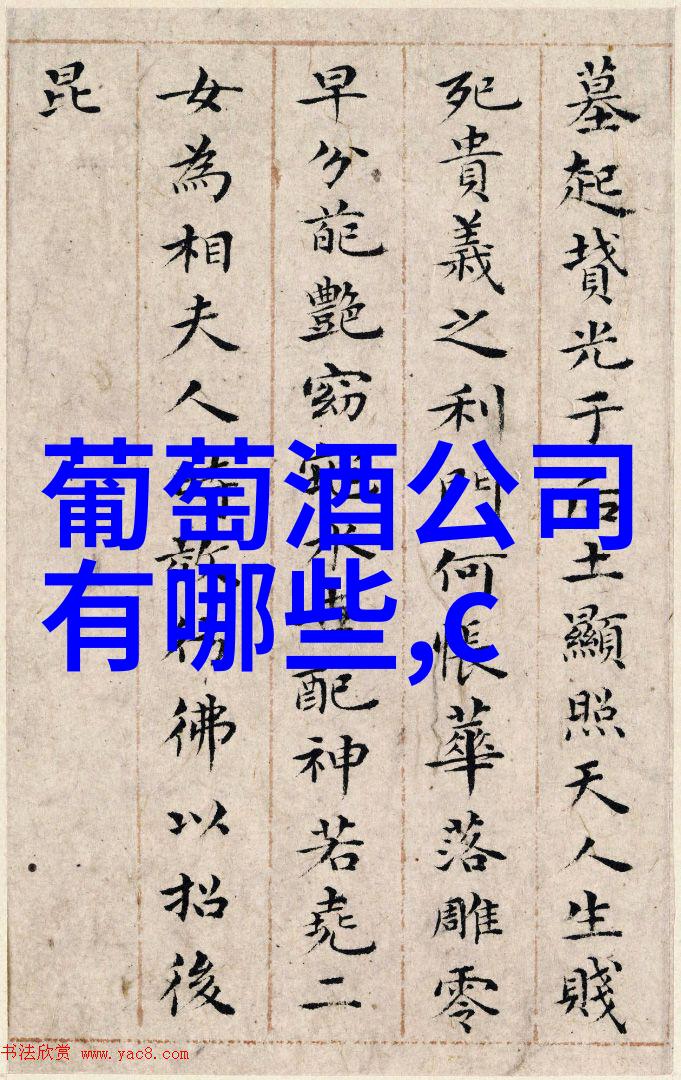 墓起墳光于后土顯照天人生賤
死貴義之利門何悵華落雕零
早分葩艷窈窕永世配神若堯二
女為相夫人時效彷彿以招後
昆
葡萄酒公司
有哪些,c
书法欣赏 www.yac8.com